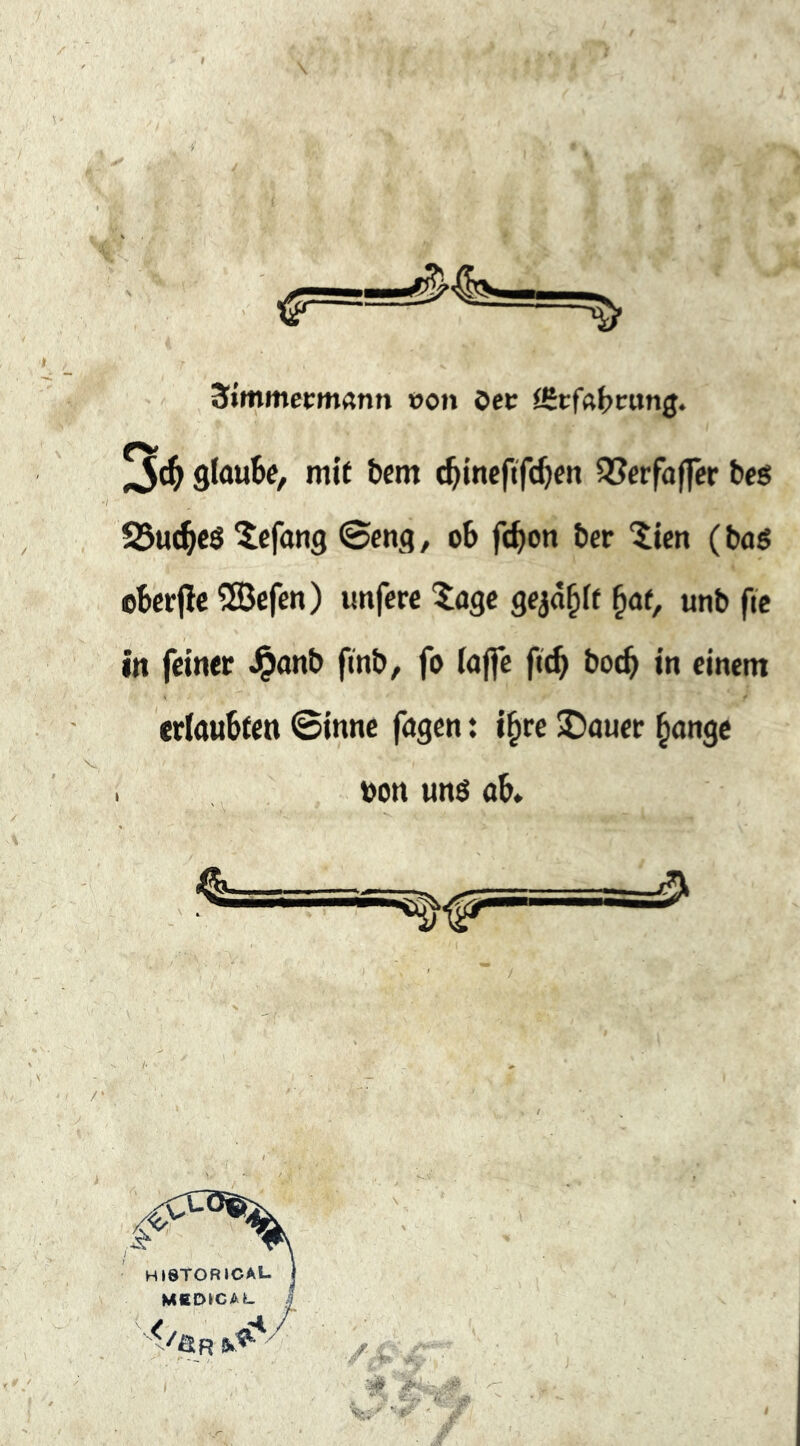 Zimmermann von der Erfahrung.
Ich glaube, mit dem chinesischen Verfasser des
Buches Tefang Seng, ob schon der Tien (das
oberste Wesen) unsere Tage gezählt hat, und sie
in seiner Hand sind, so lasse sich doch in einem
erlaubten Sinne sagen: ihre Dauer hange
von uns ab.
HISTORICAL
MEDICAL